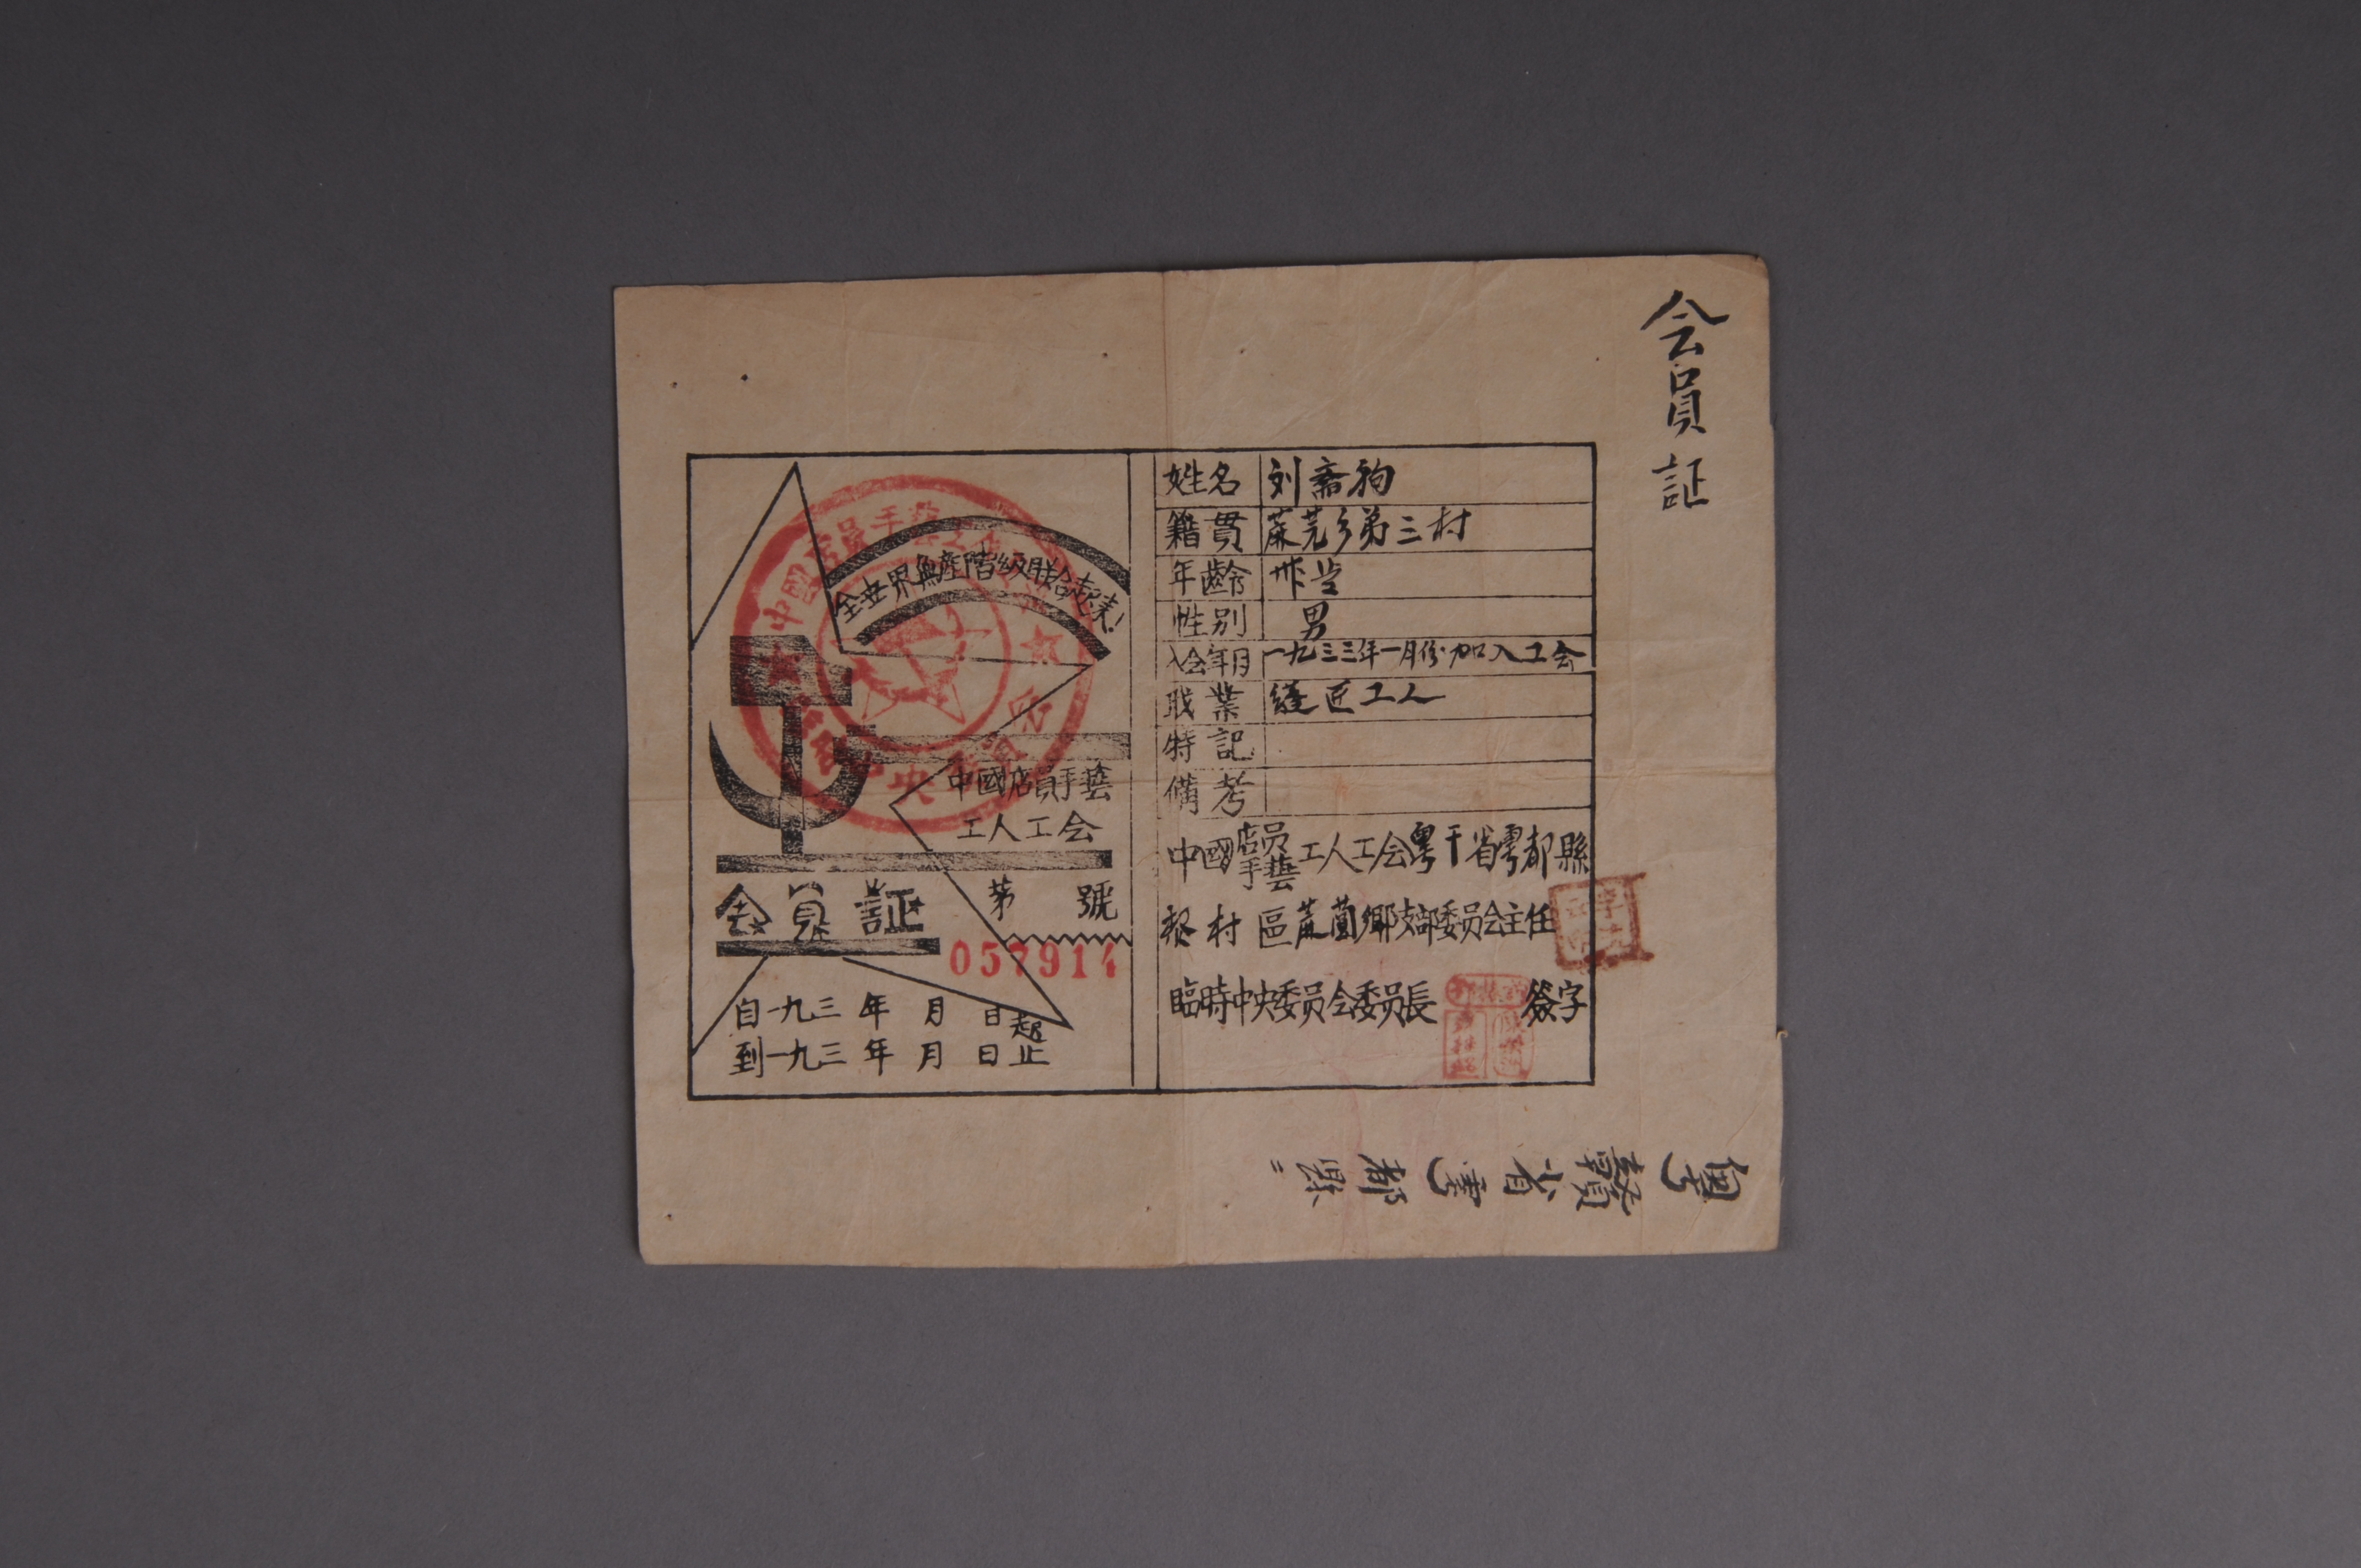 会員証
全世界無產階級联合起來!
中國店員手藝
工人工会
会員証
第 號
057914
自一九三 年 月 日起
到一九三 年 月 日止
姓名 刘斋狗
籍貫 第三村
年齡
性别 男
入会年月 一九三三年一月份加入工会
职業 縫匠工人
特記
備考
中國店员手藝工人工会粤干省雩都縣
村區鄉支部委员会主任
臨時中央委员会委員長 簽字
粵贛省雩都縣